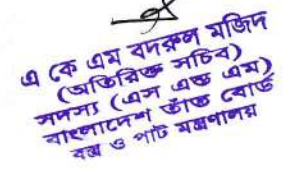 এ কে এম বদরুল মজিদ
(অতিরিক্ত সচিব)
সদস্য (এস এন্ড এম)
বাংলাদেশ তাঁত বোর্ড
বস্ত্র ও পাট মন্ত্রণালয়